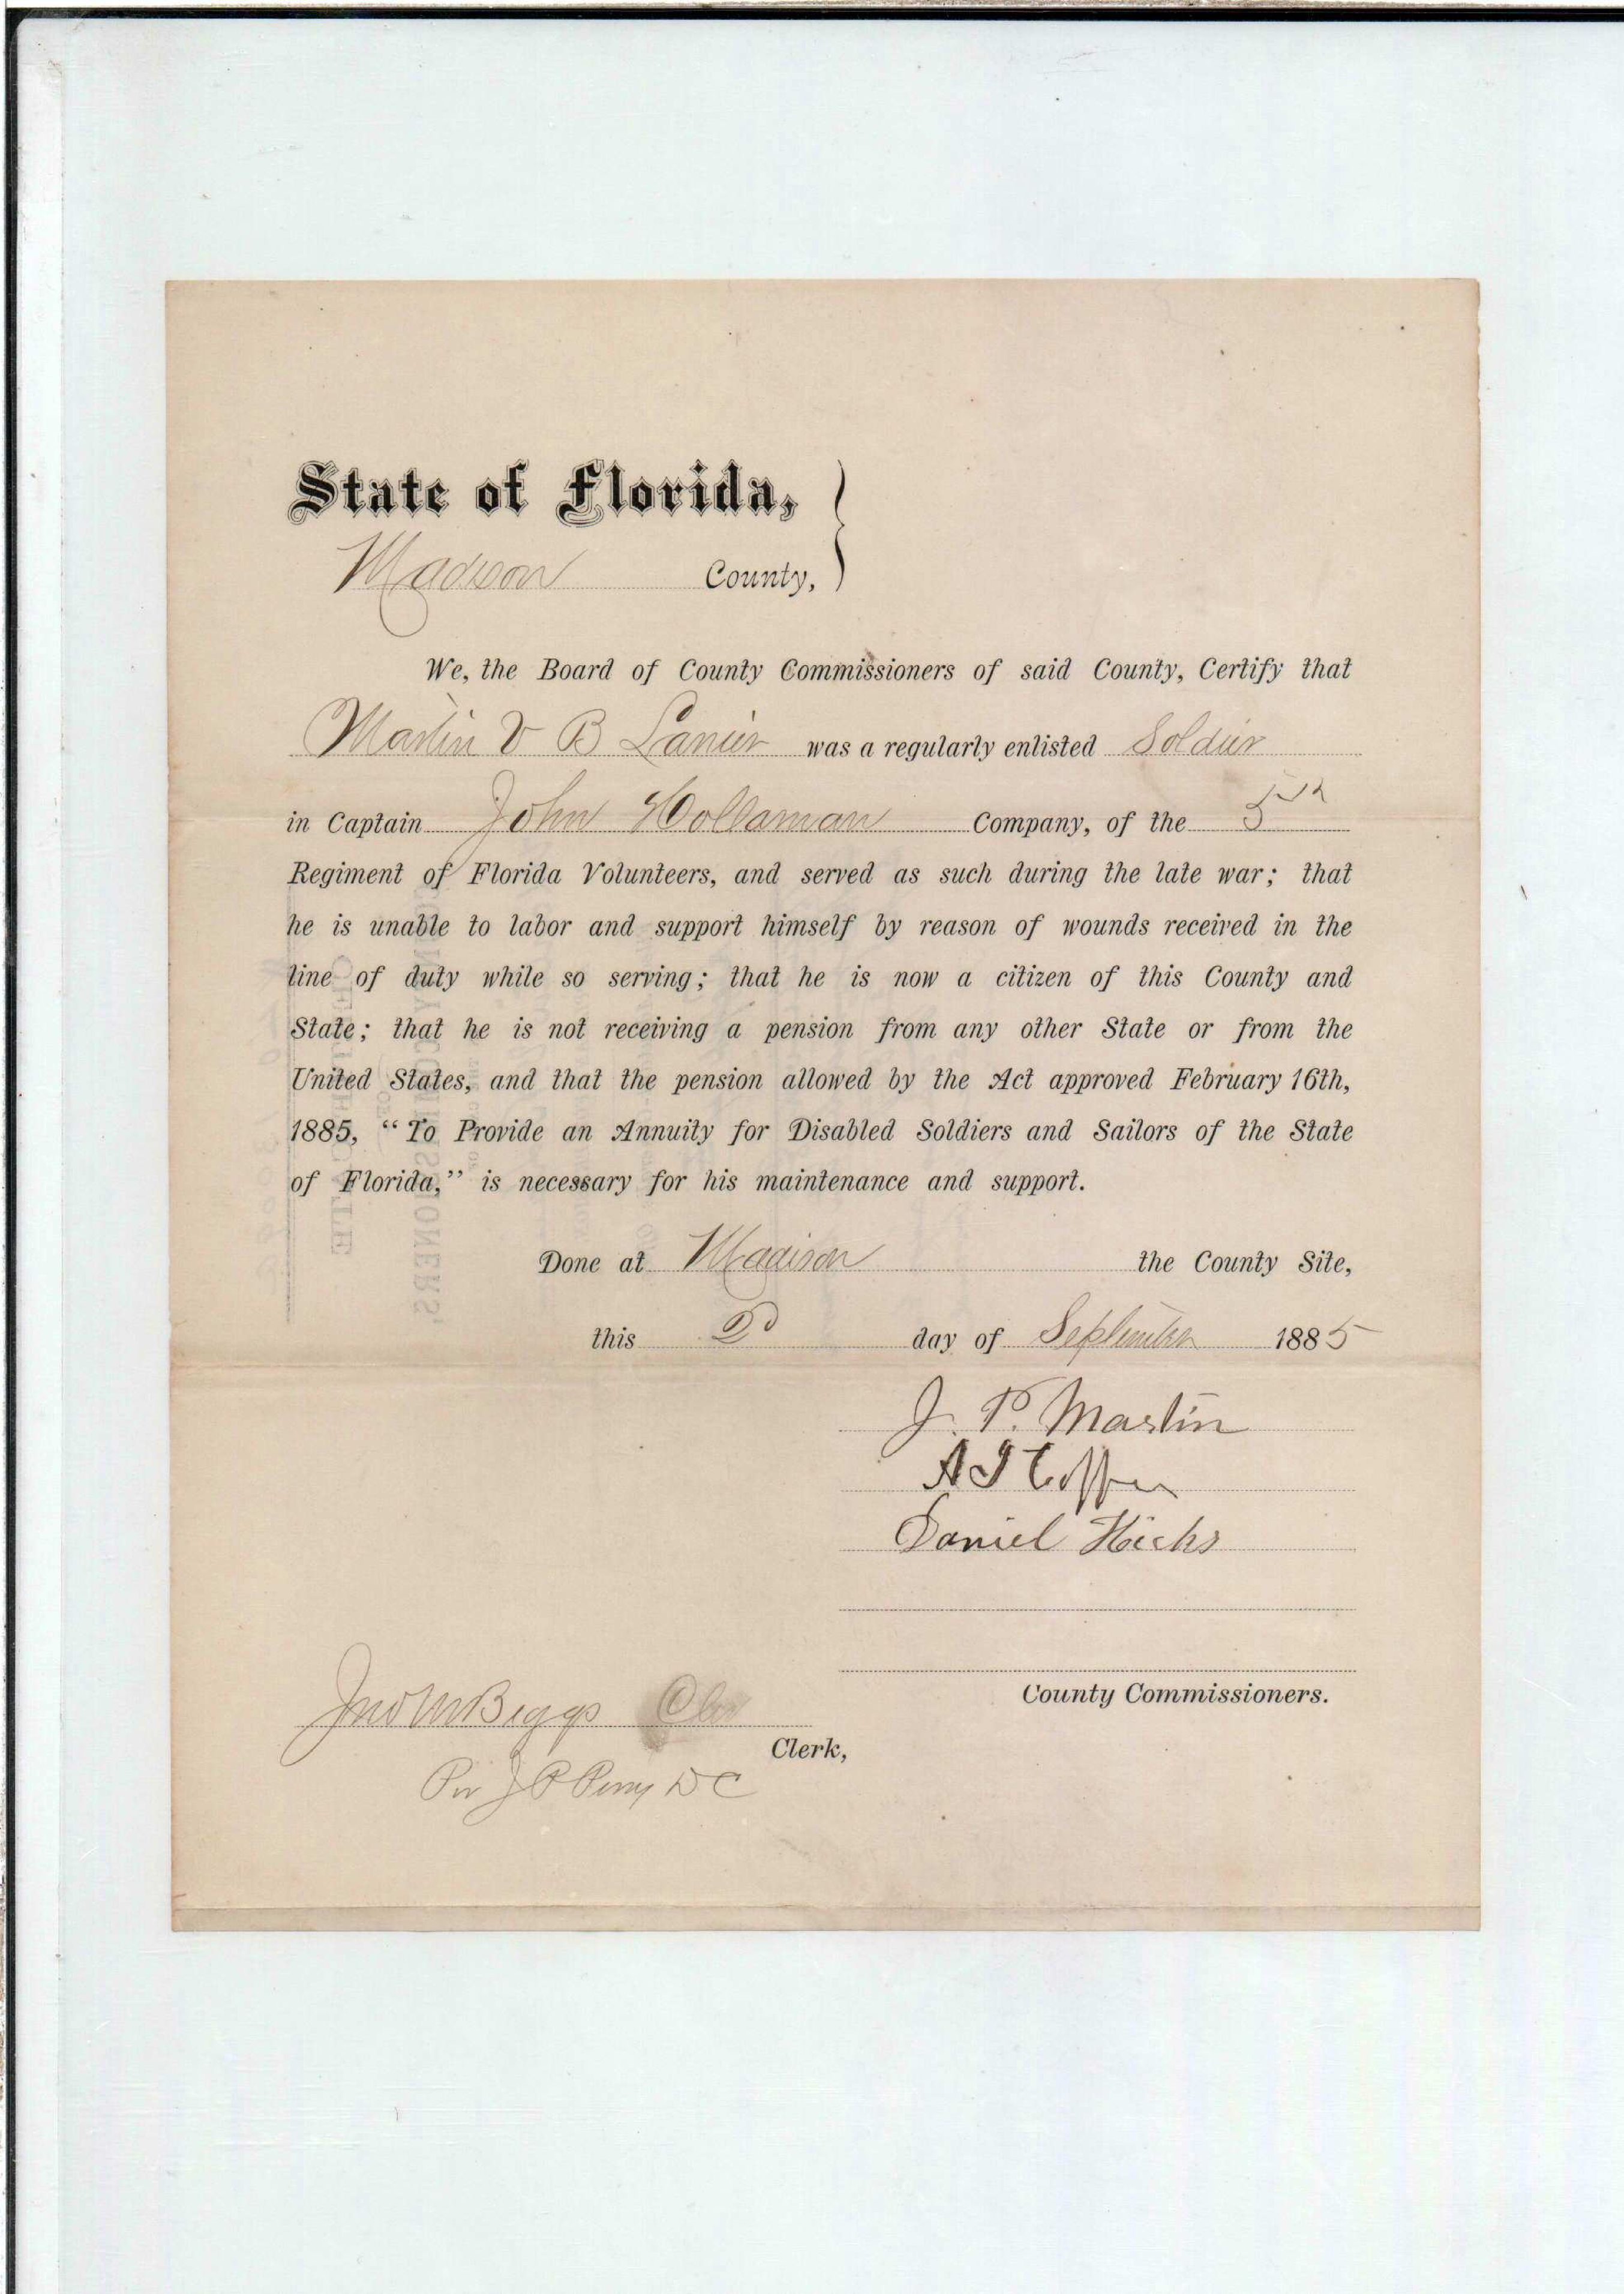 State of Florida,
Madison County,
We, the Board of County Commissioners of said County, Certify that
Martin V B Lanier was a regularly enlisted Soldier
in Captain John Hollaman Company, of the 5th
Regiment of Florida Volunteers, and served as such during the late war; that
he is unable to labor and support himself by reason of wounds received in the
line of duty while so serving; that he is now a citizen of this County and
State; that he is not receiving a pension from any other State or from the
United States, and that the pension allowed by the Act approved February 16th,
1885, “To Provide an Annuity for Disabled Soldiers and Sailors of the State
of Florida,” is necessary for his maintenance and support.
Done at Madison the County Site,
this 2d day of September 1885
J. P. Martin
A J
Daniel Hicks
County Commissioners.
Jno M Beggs
Clerk,
Per J P Perry D C